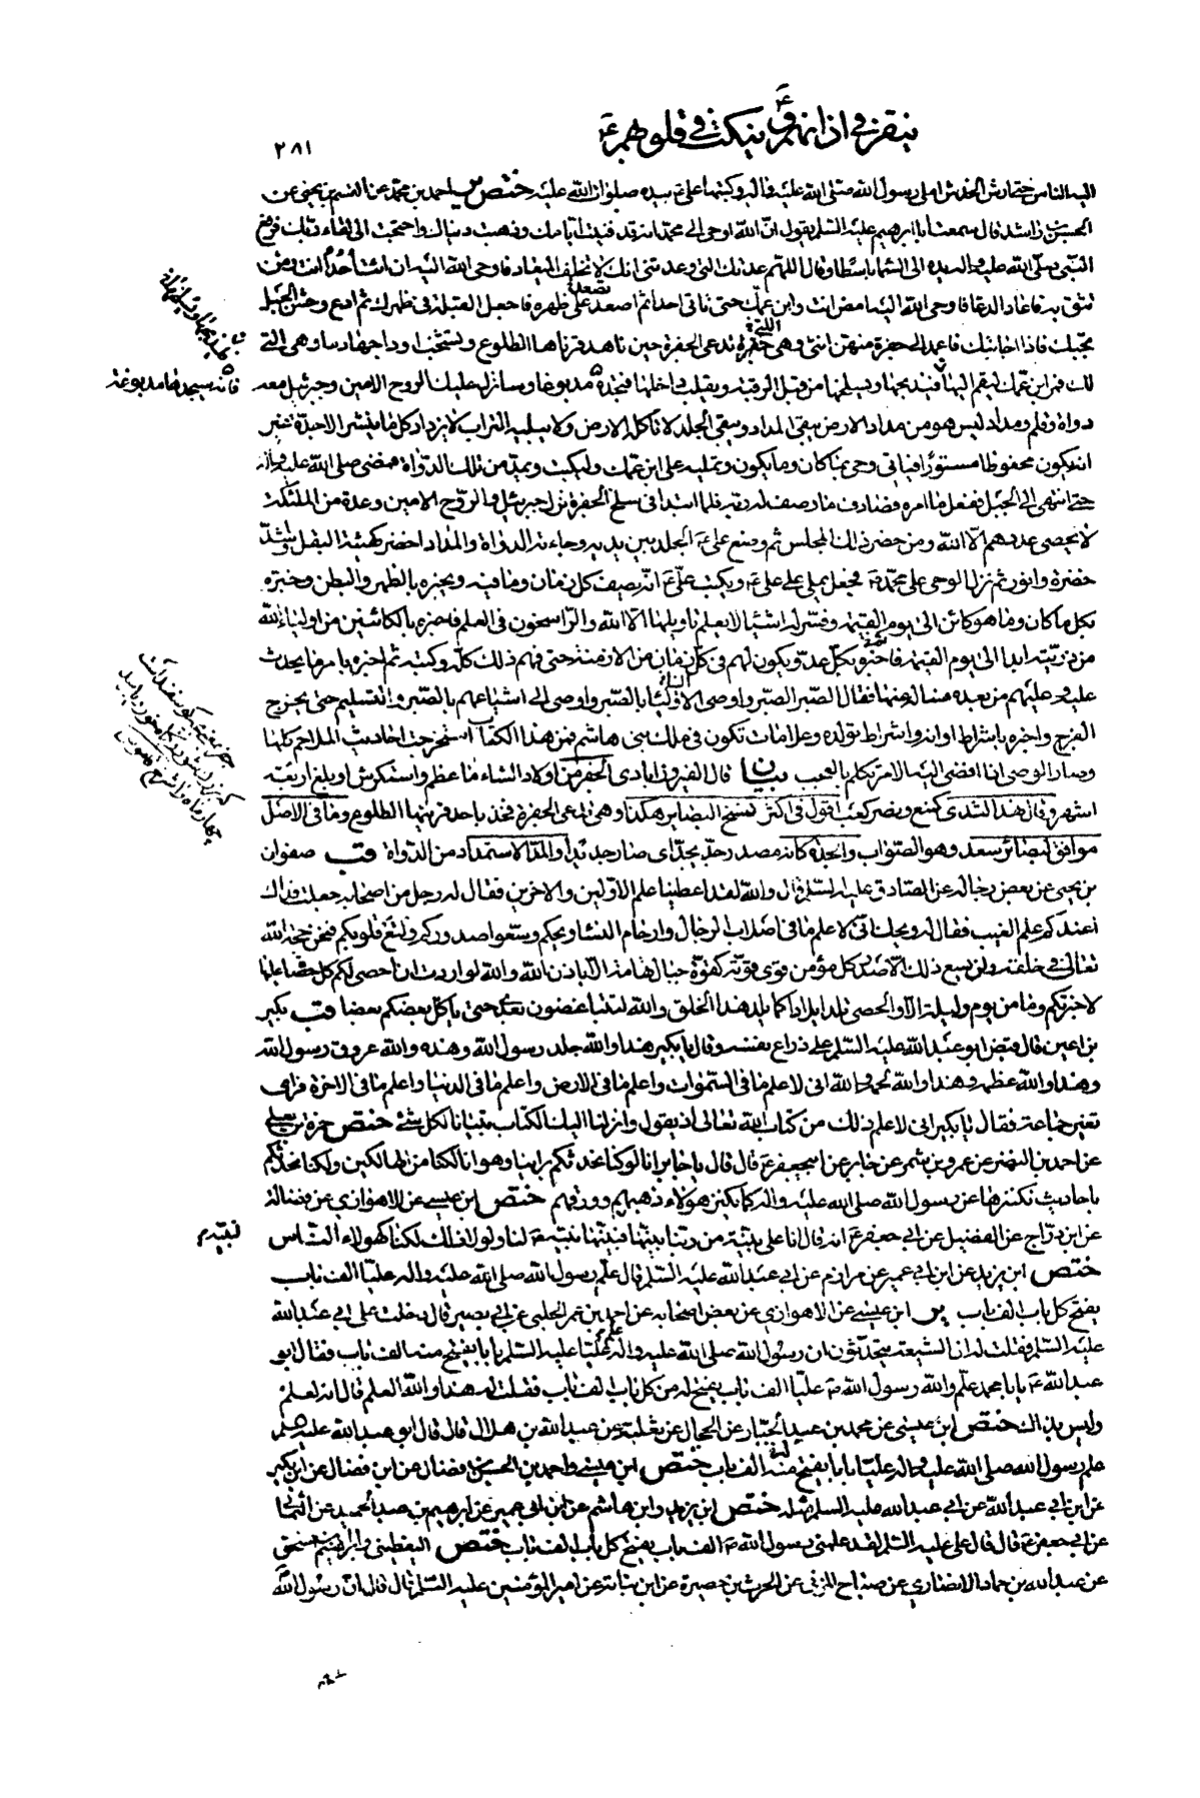 ينقر في اذانهم و ينكت في قلوبهم ع
٢٨١
اليه الناس حتى ارش الخدش املى رسول الله صلى الله عليه واله وكتبها علي ع بيده صلوات الله عليه ختص ير احمد بن محمد عن القسم بن يحيى عن
الحسن بن راشد قال سمعت ابا ابرهيم عليه السلم يقول ان الله اوحى الى محمد انه قد فنيت ايامك وذهبت دنياك واحتجت الى لقاء ربك فرفع
النبي صلى الله عليه واله يده الى السماء باسطا وقال اللهم عدتك التي وعدتني انك لا تخلف الميعاد فاوحى الله اليه ان ائت احدا انت ومن
تثق به فاعاد الدعا فاوحى الله اليه امض انت وابن عمك حتى تاتي احدا ثم اصعد على ظهره فاجعل القبلة في ظهرك ثم ادع وحش الجبل
تجبك فاذا اجابتك فاعمد الى جفرة منهن انثى وهي تدعى الجفرة حين ناهد قرناها الطلوع وتشخب اوداجها دما وهي التي
لك فمر ابن عمك ليقم اليها فيذبحها ويسلخها من قبل الرقبة ويقلب داخلها فتجده مدبوغا وسانزل عليك الروح الامين وجبرئيل معه
دواة وقلم ومداد ليس هو من مداد الارض يبقى المداد ويبقى الجلد لا تاكله الارض ولا يبليه التراب لا يزداد كل ما ينشر الا جدة غير
انه يكون محفوظا مستورا فياتي وحي بما كان وما يكون وتمليه على ابن عمك وليكتب ويمد من تلك الدواة فمضى صلى الله عليه واله
حتى انتهى الى الجبل ففعل ما امره فصادف ما وصف له ربه فلما ابتدا في سلخ الجفرة نزل جبرئيل والروح الامين وعدة من الملئكة
لا يحصي عددهم الا الله ومن حضر ذلك المجلس ثم وضع علي ع الجلد بين يديه وجاءته الدواة والمداد اخضر كهيئة البقل واشد
خضرة وانور ثم نزل الوحي على محمد ص فجعل يملي على علي ع ويكتب علي ع انه يصف كل زمان وما فيه ويخبره بالظهر والبطن وخبره
بكل ما كان وما هو كائن الى يوم القيمة وفسر له اشياء لا يعلم تاويلها الا الله والراسخون في العلم فاخبره بالكائنين من اولياء الله
من ذريته ابدا الى يوم القيمة فاخبره بكل عدو يكون لهم في كل زمان من الازمنة حتى فهم ذلك كله وكتبه ثم اخبره بامر ما يحدث
عليه وعليهم من بعده فساله عنها فقال الصبر الصبر واوصى الاولياء بالصبر واوصى الى اشياعهم بالصبر والتسليم حتى يخرج
الفرج واخبره باشراط اوانه واشراط تولده وعلامات تكون في ملك بني هاشم فمن هذا الكتاب استخرجت احاديث الملاحم كلها
وصار الوصي اذا افضى اليه الامر تكلم بالعجب بيان قال الفيروزابادي الجفر من اولاد الشاء ما عظم واستكرش او بلغ اربعة
اشهر وقال نهد الثدي كمنع ونصر كعب اقول في اكثر نسخ البصاير هكذا وهي تدعى الجفرة فخذ باحد قرنيها الطلوع وما في الاصل
موافق لبصائر سعد وهو الصواب والجدة كانه مصدر وجد يجد اي صار جديدا والمد الاستمداد من الدواة قب صفوان
بن يحيى عن بعض رجاله عن الصادق عليه السلم قال والله لقد اعطينا علم الاولين والاخرين فقال له رجل من اصحابه جعلت فداك
اعندكم علم الغيب فقال له ويحك اني لاعلم ما في اصلاب الرجال وارحام النساء ويحكم وسعوا صدوركم ولتع قلوبكم فنحن حجة الله
تعالى في خلقه ولن يسع ذلك الا صدر كل مؤمن قوي قوته كقوة جبال تهامة الا باذن الله والله لو اردت ان احصي لكم كل حصاة عليها
لاخبرتكم وما من يوم وليلة الا والحصى تلد ايلادا كما يلد هذا الخلق والله لتتباغضون بعدي حتى ياكل بعضكم بعضا قب بكير
بن اعين قال قبض ابو عبد الله عليه السلم على ذراع نفسه وقال يا بكير هذا والله جلد رسول الله وهذه والله عروق رسول الله
وهذا والله عظمه وهذا والله لحمه والله اني لاعلم ما في السموات واعلم ما في الارض واعلم ما في الدنيا واعلم ما في الاخرة فراى
تغير جماعة فقال يا بكير اني لاعلم ذلك من كتاب الله تعالى اذ يقول وانزلنا اليك الكتاب تبيانا لكل شئ ختص حمزة بن يعلى
عن احمد بن النضر عن عمرو بن شمر عن جابر عن ابي جعفر ع قال قال يا جابر انا لو كنا نحدثكم براينا وهوانا لكنا من الهالكين ولكنا نحدثكم
باحاديث نكنزها عن رسول الله صلى الله عليه واله كما يكنز هؤلاء ذهبهم وورقهم ختص ابن عيسى عن الاهوازي عن فضالة
عن ابن دراج عن الفضيل عن ابي جعفر ع انه قال انا على بينة من ربنا بينها لنبيه فبينها نبيه لنا ولولا ذلك لكنا كهؤلاء الناس
ختص ابن يزيد عن ابن ابي عمير عن مرازم عن ابي عبد الله عليه السلم قال علم رسول الله صلى الله عليه واله عليا الف باب
يفتح كل باب الف باب ير ابن عيسى عن الاهوازي عن بعض اصحابه عن احمد بن عمر الحلبي عن ابي بصير قال دخلت على ابي عبد الله
عليه السلم فقلت له ان الشيعة يتحدثون ان رسول الله صلى الله عليه واله علم عليا عليه السلم بابا يفتح منه الف باب فقال ابو
عبد الله ع يا با محمد علم والله رسول الله ص عليا الف باب يفتح له من كل باب الف باب فقلت له هذا والله العلم قال انه لعلم
وليس بذاك ختص ابن عيسى عن محمد بن عبد الجبار عن الحجال عن ثعلبة عن عبد الله بن هلال قال قال ابو عبد الله عليه السلم
علم رسول الله صلى الله عليه واله عليا بابا يفتح منه الف باب ختص ابن عيسى واحمد بن الحسن بن فضال عن ابن فضال عن ابن بكير
عن ابن ابي عبد الله عن ابي عبد الله عليه السلم مثله ختص ابن يزيد وابن هاشم عن ابن ابي عمير عن ابرهيم بن عبد الحميد عن الثمالي
عن ابي جعفر ع قال قال علي عليه السلم لقد علمني رسول الله ص الف باب يفتح كل باب الف باب ختص اليقطيني وابرهيم بن اسحق
عن عبد الله بن حماد الانصاري عن صباح المزني عن الحرث بن حصيرة عن ابن نباتة عن امير المؤمنين عليه السلم قال قال ان رسول الله
فانه سيجدها مدبوغة
لنبيه م